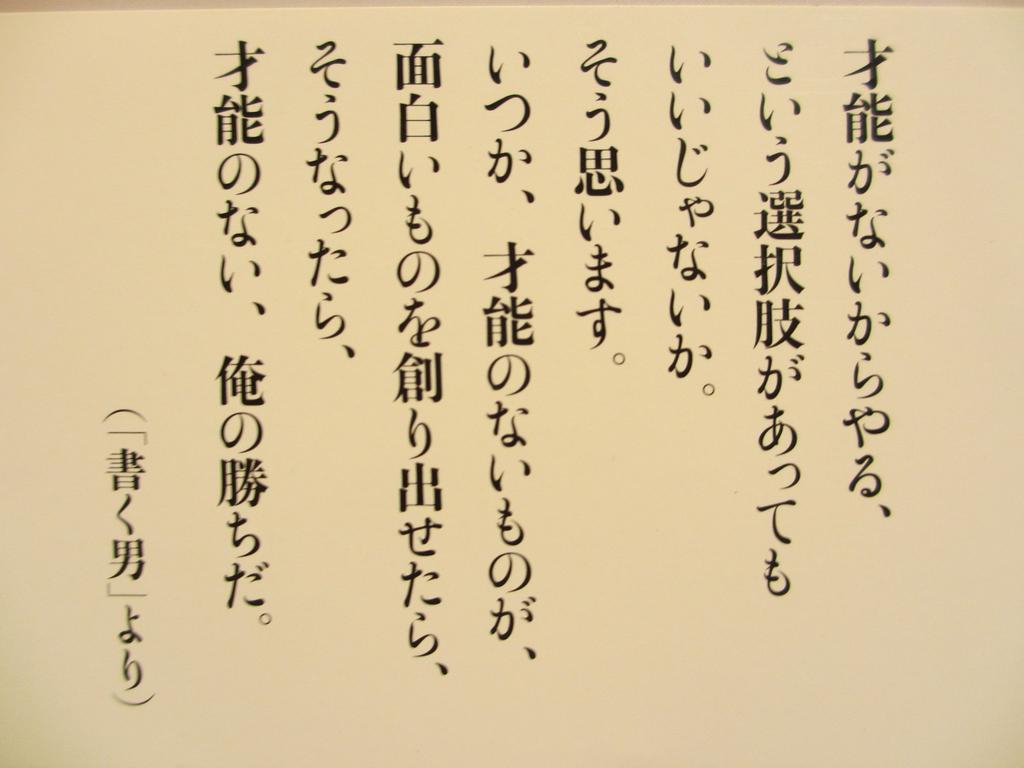 才能がないからやる、
という選択肢があっても
いいじゃないか。
そう思います。
いつか、才能のないものが、
面白いものを創り出せたら、
そうなったら、
才能のない、俺の勝ちだ。
（「書く男」より）